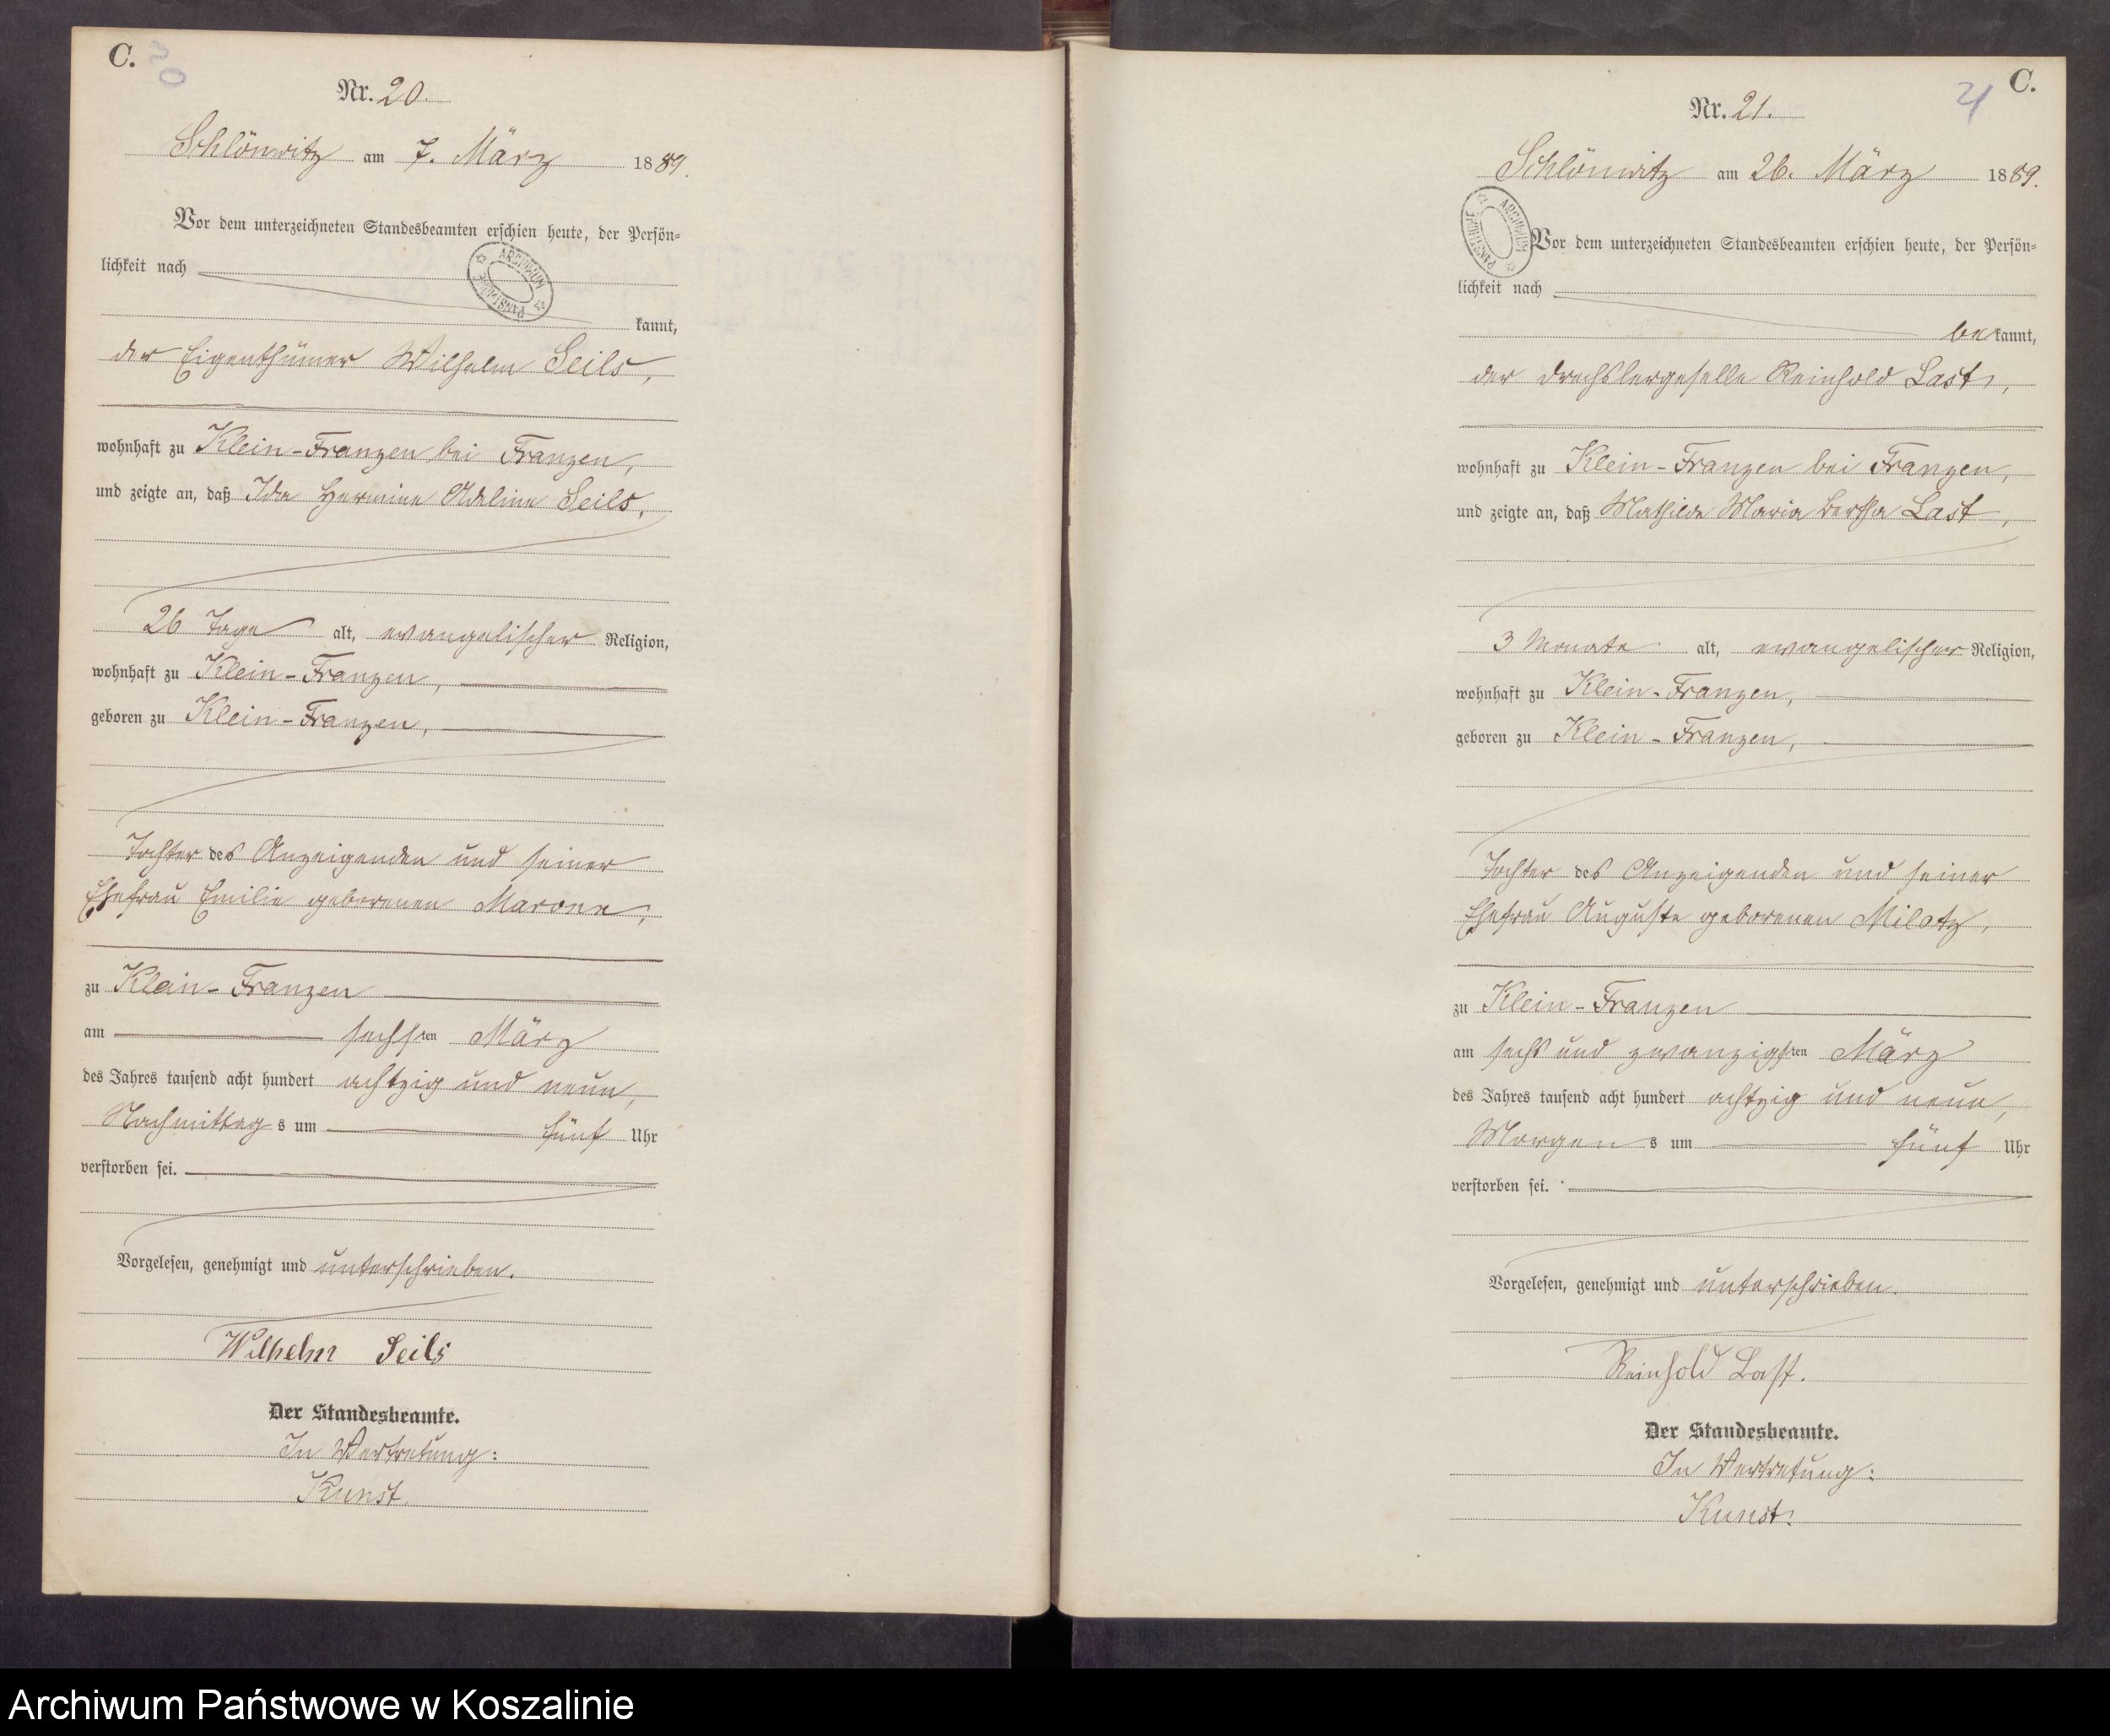 C.
20
Nr. 20.
Schlönwitz am 7. März 1889.
Vor dem unterzeichneten Standesbeamten erschien heute, der Persön=
lichkeit nach
kannt,
der Eigenthümer Wilhelm Seils,
wohnhaft zu Klein-Franzen bei Franzen,
und zeigte an, daß Ida Hermine Adeline Seils,
26 Tage alt, evangelischer Religion,
wohnhaft zu Klein-Franzen,
geboren zu Klein-Franzen,
Tochter des Anzeigenden und seiner
Ehefrau Emilie geborenen Marone,
zu Klein-Franzen
am sechsten März
des Jahres tausend acht hundert achtzig und neun,
Nachmittags um fünf Uhr
verstorben sei.
Vorgelesen, genehmigt und unterschrieben.
Wilhelm Seils
Der Standesbeamte.
In Vertretung:
Kunst.
ARCHIWUM PAŃSTWOWE
C.
21
Nr. 21.
Schlönwitz am 26. März 1889.
ARCHIWUM PAŃSTWOWE
Vor dem unterzeichneten Standesbeamten erschien heute, der Persön=
lichkeit nach
bekannt,
der Drechslergeselle Reinhold Last,
wohnhaft zu Klein-Franzen bei Franzen,
und zeigte an, daß Mathilde Maria Bertha Last,
3 Monate alt, evangelischer Religion,
wohnhaft zu Klein-Franzen,
geboren zu Klein-Franzen,
Tochter des Anzeigenden und seiner
Ehefrau Auguste geborenen Milotz,
zu Klein-Franzen
am sechs und zwanzigsten März
des Jahres tausend acht hundert achtzig und neun,
Morgens um fünf Uhr
verstorben sei.
Vorgelesen, genehmigt und unterschrieben.
Reinhold Last.
Der Standesbeamte.
In Vertretung:
Kunst.
Archiwum Państwowe w Koszalinie